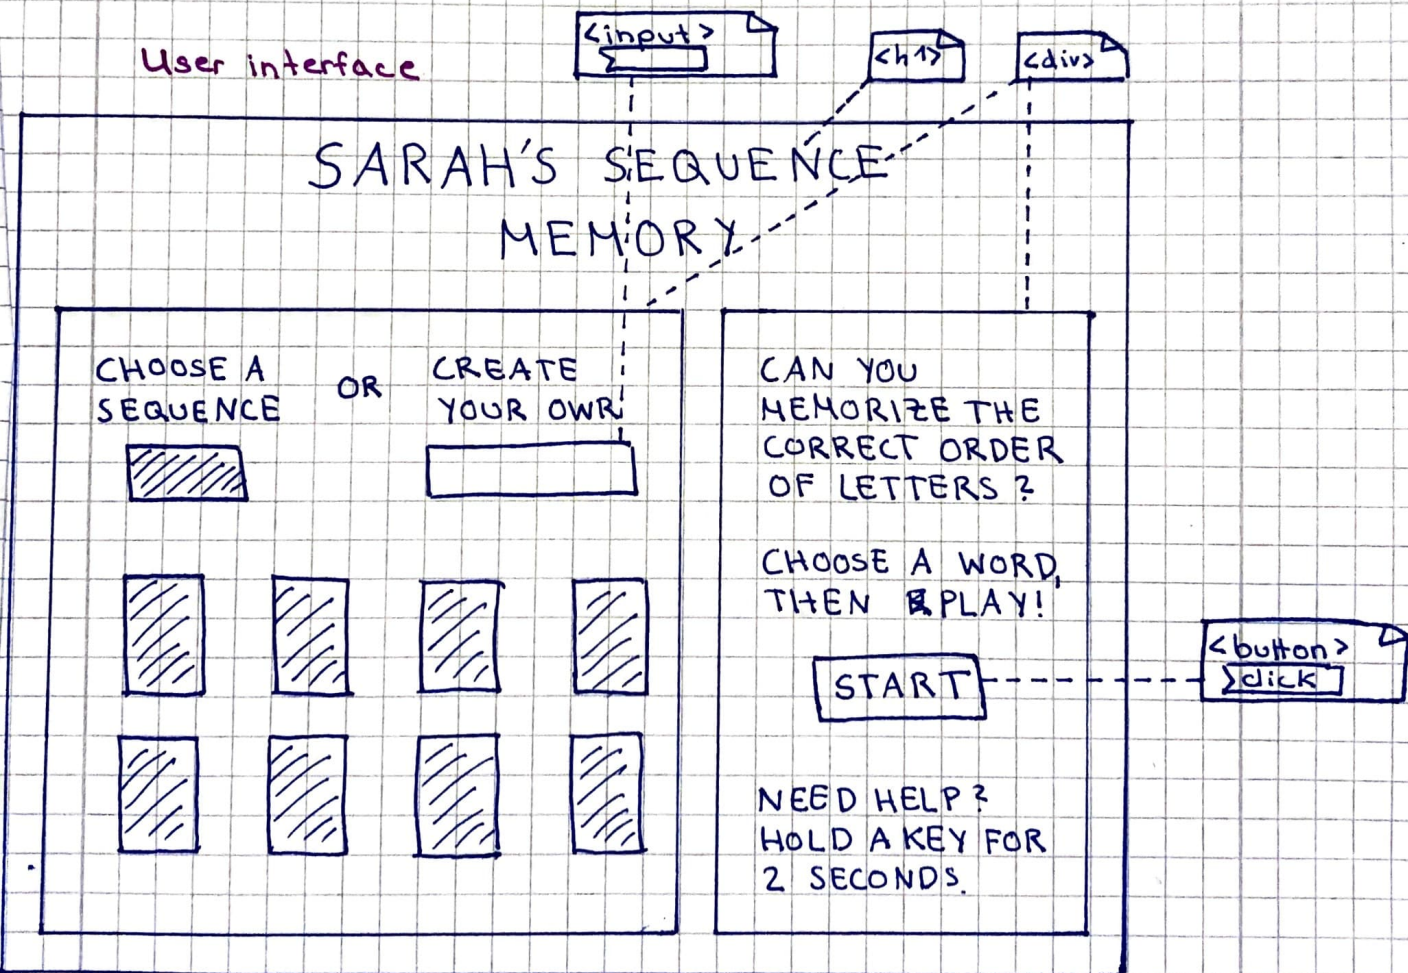 User interface
<input>
<h1>
<div>
SARAH'S SEQUENCE
MEMORY
CHOOSE A
SEQUENCE
OR
CREATE
YOUR OWN
CAN YOU
MEMORIZE THE
CORRECT ORDER
OF LETTERS?
CHOOSE A WORD,
THEN PLAY!
START
<button>
click
NEED HELP?
HOLD A KEY FOR
2 SECONDS.